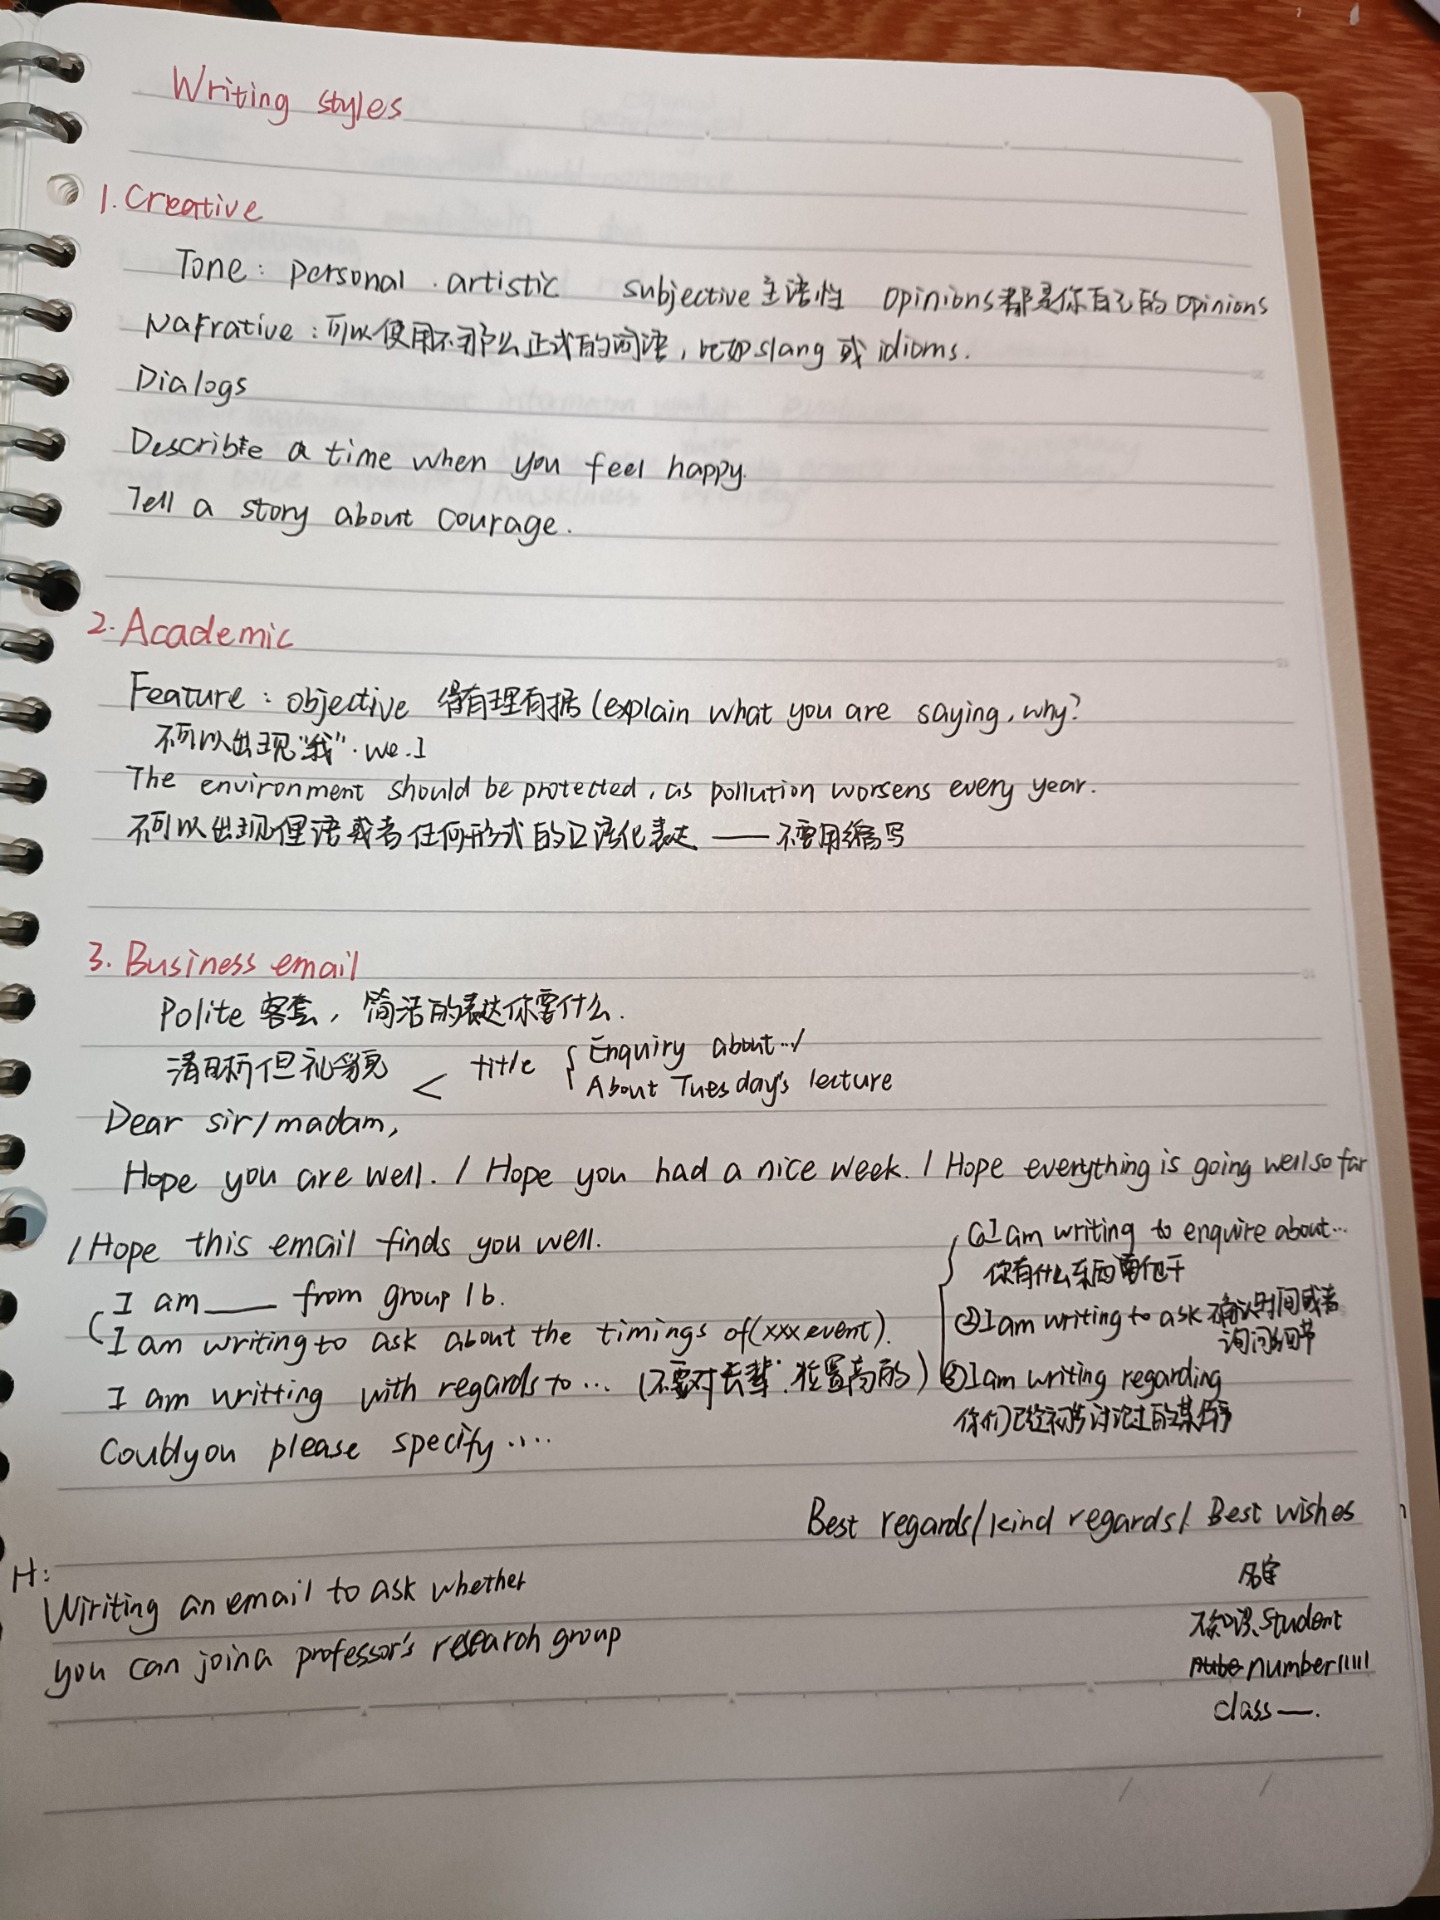 Writing styles
1. Creative
Tone: personal . artistic subjective 主语性 opinions都是你自己的opinions
Narrative:可以使用不那么正式的词语,比如slang 或 idioms.
Dialogs
Describe a time when you feel happy.
Tell a story about courage.
2. Academic
Feature: objective 得有理有据(explain what you are saying, why?
不可以出现"我". we. I
The environment should be protected, as pollution worsens every year.
不可以出现俚语或者任何形式的口语化表达——不要用缩写
3. Business email
Polite 客套, 简洁的表达你要什么.
清晰但礼貌 < title { Enquiry about.../
About Tuesday's lecture
Dear sir/madam,
Hope you are well. / Hope you had a nice week. / Hope everything is going well so far
/ Hope this email finds you well.
I am ___ from group 1b.
I am writing to ask about the timings of(xxx event).
I am writting with regards to... (不要对长辈.位置高的)
Could you please specify....
①I am writing to enquire about...
你有什么东西需他干
②I am writing to ask 确认时间或者
询问细节
③I am writing regarding
你们已经初步讨论过的某件事
Best regards/kind regards/ Best wishes
名字
不知识,student
number11111
class—.
H:
Writing an email to ask whether
you can join a professor's research group